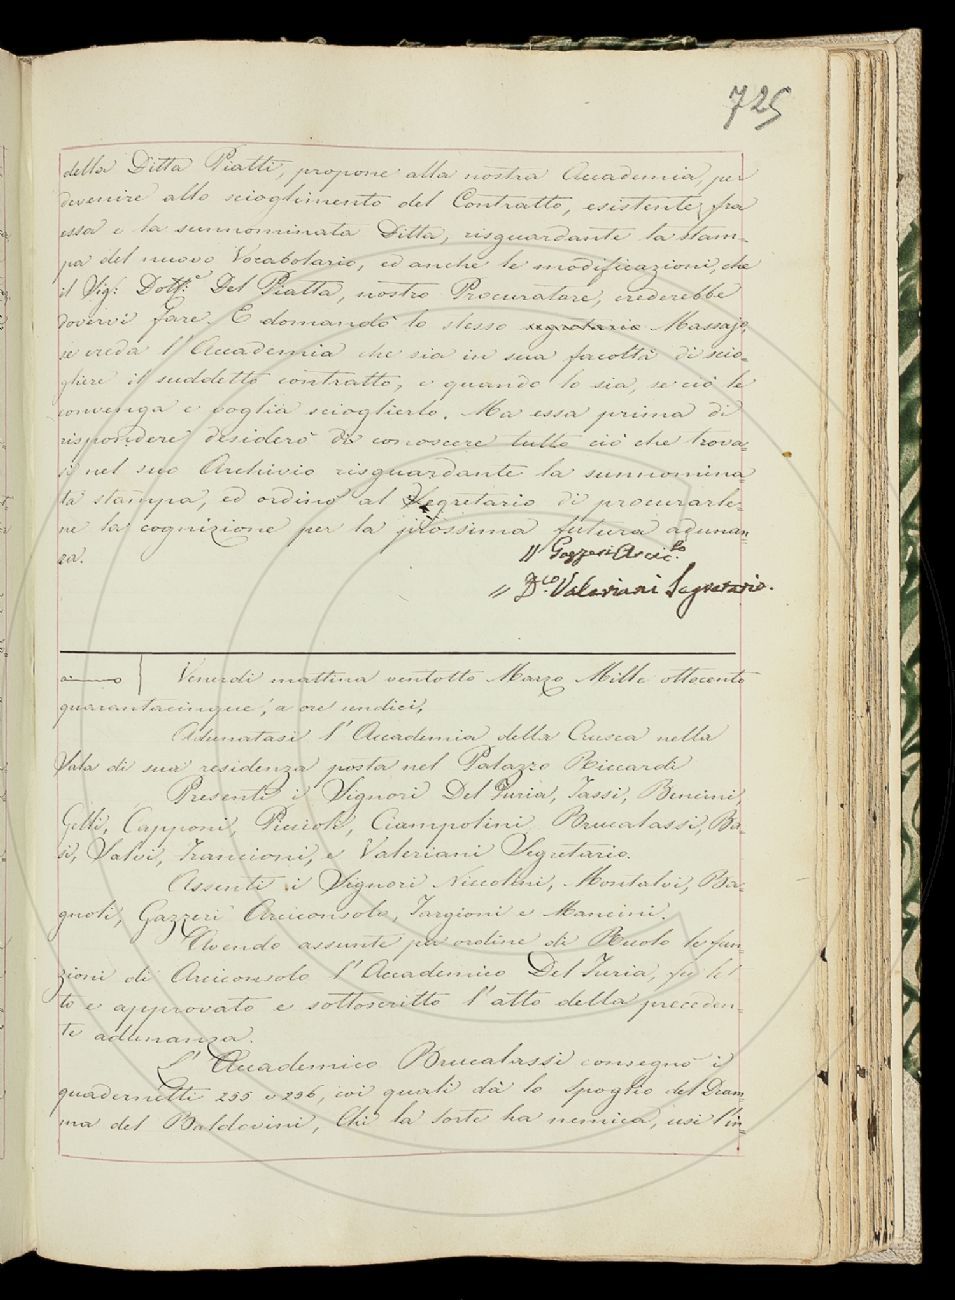 725
della Ditta Piatti, propone alla nostra Accademia, per
devenire allo scioglimento del Contratto, esistente fra
essa e la sunnominata Ditta, risguardante la stam=
pa del nuovo Vocabolario, ed anche le modificazioni, che
il Sig: Dott:e Del Piatta, nostro Procuratore, crederebbe
dovervi fare. E domandò lo stesso segretario Massajo,
se creda l'Accademia che sia in sua facoltà di scio=
gliere il suddetto contratto, e quando lo sia, se ciò le
convenga e voglia scioglierlo. Ma essa prima di
rispondere desiderò di conoscere tutto ciò che trova=
si nel suo Archivio risguardante la sunnomina=
ta stampa, ed ordinò al Segretario di procurarle=
ne la cognizione per la prossima futura adunan=
za.
" Gazzeri Arcic:lo
" D:co Valeriani Segretario.
Venerdì mattina ventotto Marzo Mille ottocento
quarantacinque, a ore undici,
Adunatasi l'Accademia della Crusca nella
Sala di sua residenza posta nel Palazzo Riccardi
Presenti i Signori Del Furia, Tassi, Bencini,
Gelli, Capponi, Piccioli, Ciampolini, Brucalassi, Ba=
si, Salvi, Francioni, e Valeriani Segretario.
Assenti i Signori Niccolini, Montalvi, Ba=
gnoli, Gazzeri Arciconsolo, Targioni e Mancini.
Avendo assunte per ordine di Ruolo le fun=
zioni di Arciconsolo l'Accademico Del Furia, fu let=
to e approvato e sottoscritto l'atto della preceden=
te adunanza.
L'Accademico Brucalassi consegnò i
quadernetti 255 e 256, coi quali dà lo spoglio del Dram=
ma del Baldovini, Chi la sorte ha nemica, usi l'in=